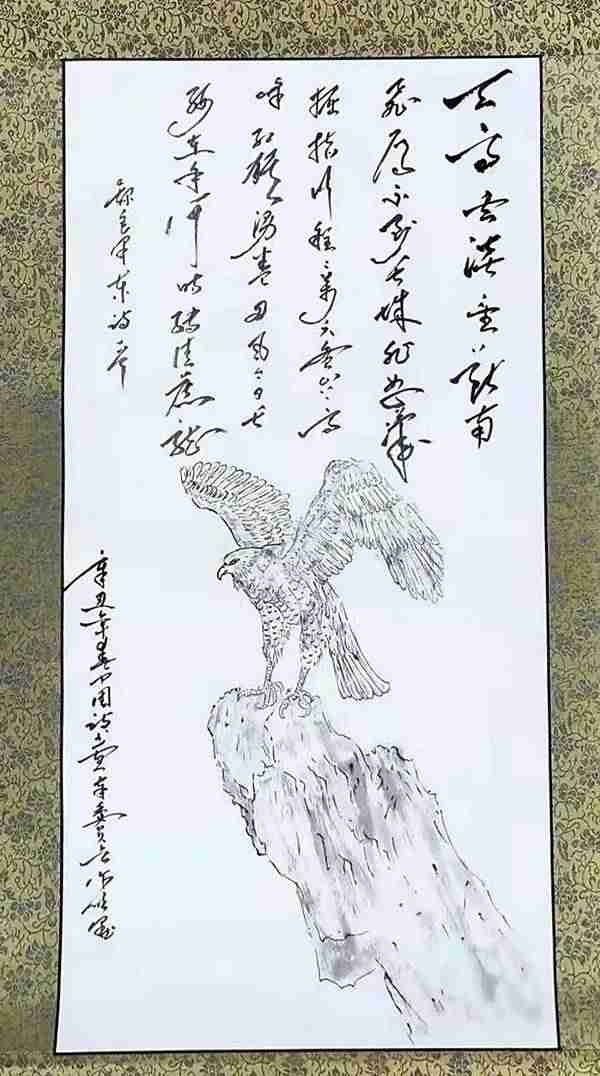 天高云淡望断南
飞雁不到长城非好汉
屈指行程二万六盘山上高
峰红旗漫卷西风今日长
缨在手何时缚住苍龙
录毛泽东诗
辛丑年春中国诗